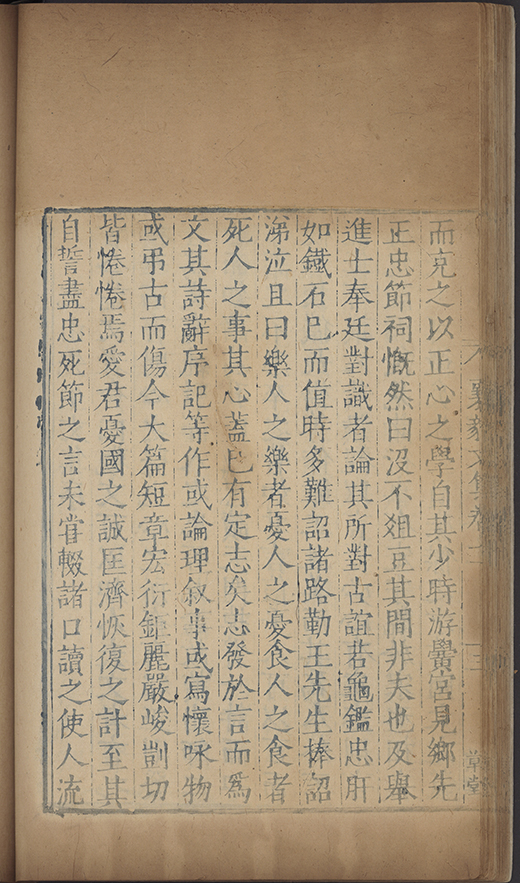 而克之以正心之學自其少時游黌宮見鄉先
正忠節祠慨然曰沒不俎豆其間非夫也及舉
進士奉廷對識者論其所對古誼若龜鑑忠肝
如鐵石已而值時多難詔諸路勤王先生捧詔
涕泣且曰樂人之樂者憂人之憂食人之食者
死人之事其心蓋已有定志矣志發於言而為
文其詩辭序記等作或論理敘事或寫懷咏物
或弔古而傷今大篇短章宏衍鉅麗嚴峻剴切
皆惓惓焉愛君憂國之誠匡濟恢復之計至其
自誓盡忠死節之言未甞輟諸口讀之使人流
草堂